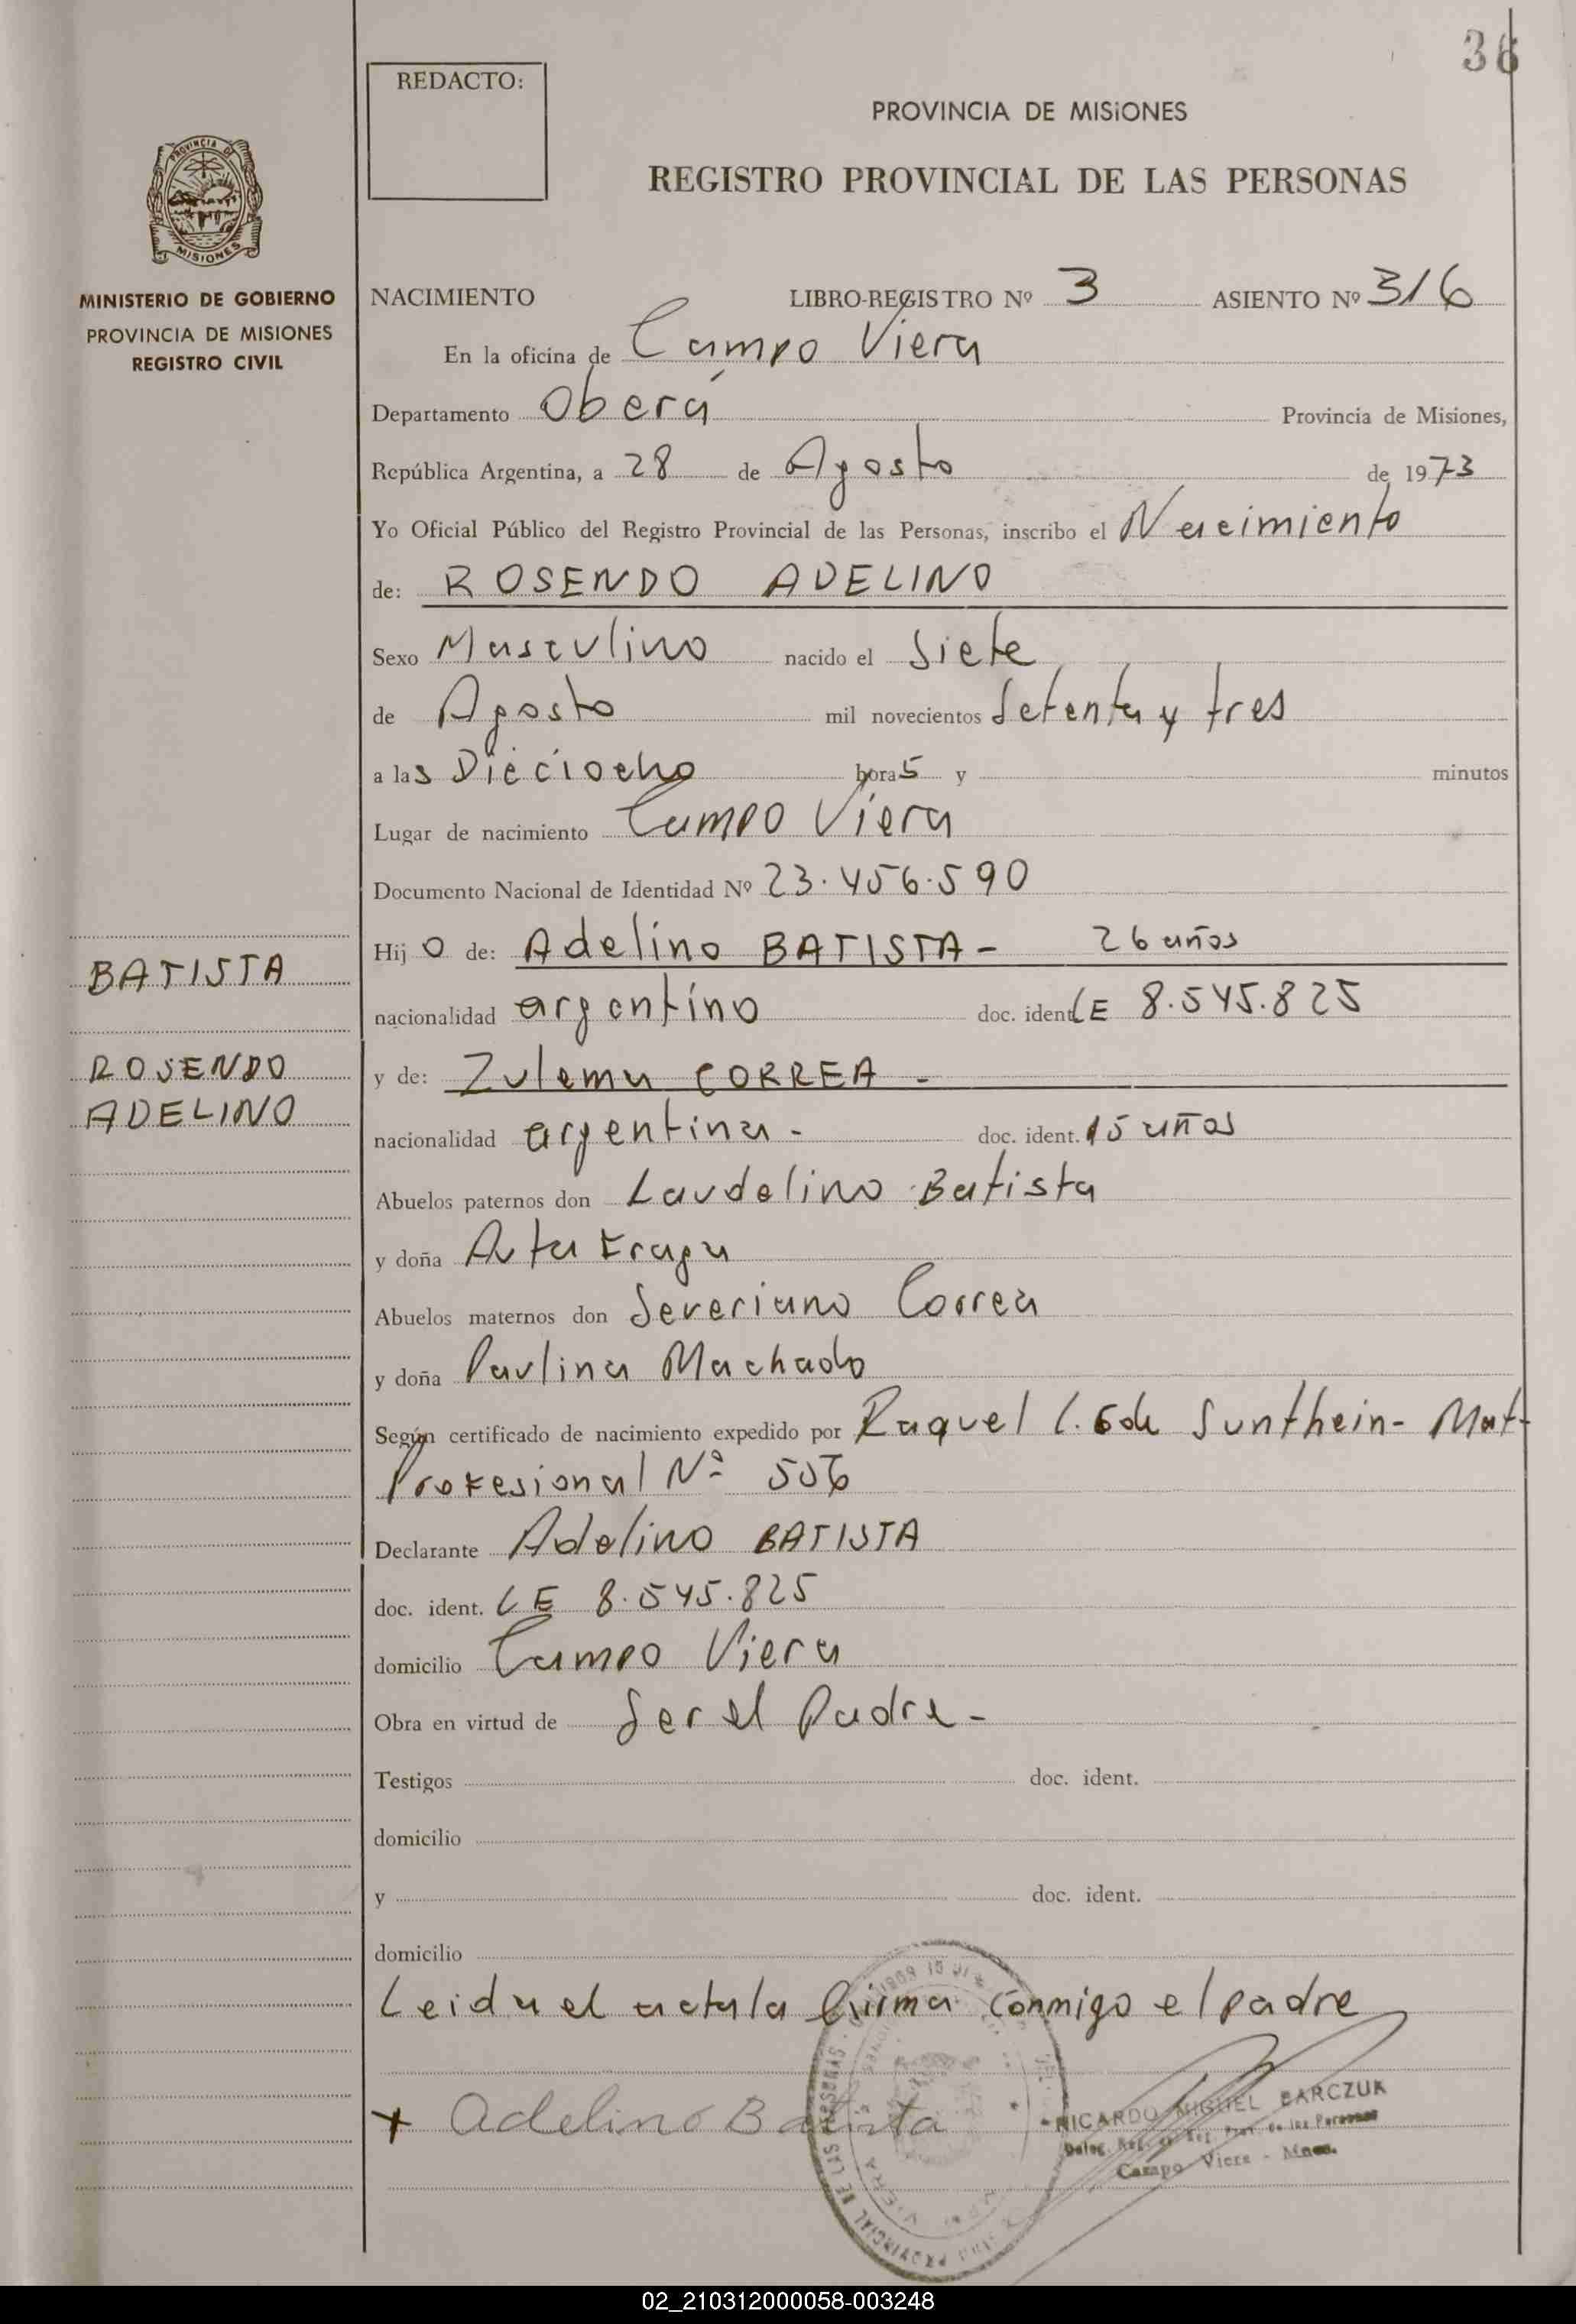 36
REDACTO:
PROVINCIA DE MISIONES
REGISTRO PROVINCIAL DE LAS PERSONAS
PROVINCIA DE
MISIONES
MINISTERIO DE GOBIERNO
PROVINCIA DE MISIONES
REGISTRO CIVIL
NACIMIENTO LIBRO-REGISTRO Nº 3 ASIENTO Nº 316
En la oficina de Campo Viera
Departamento Oberá Provincia de Misiones,
República Argentina, a 28 de Agosto de 1973
Yo Oficial Público del Registro Provincial de las Personas, inscribo el Nacimiento
de: ROSENDO ADELINO
Sexo Masculino nacido el Siete
de Agosto mil novecientos Setenta y tres
a las Dieciocho horas y minutos
Lugar de nacimiento Campo Viera
Documento Nacional de Identidad Nº 23.456.590
Hijo de: Adelino BATISTA - 26 años
BATISTA
nacionalidad argentino doc. ident. LE 8.545.825
ROSENDO
ADELINO
y de: Zulema CORREA -
nacionalidad argentina - doc. ident. 15 años
Abuelos paternos don Laudelino Batista
y doña
Abuelos maternos don Severiano Correa
y doña Paulina Machado
Según certificado de nacimiento expedido por Raquel de Sunthein - Mat-
Profesional Nº 556
Declarante Adelino BATISTA
doc. ident. LE 8.545.825
domicilio Campo Viera
Obra en virtud de Ser el Padre -
Testigos doc. ident.
domicilio
y doc. ident.
domicilio
Leida el acta la firma conmigo el padre
+ Adelino Batista
RICARDO MIGUEL BARCZUK
Campo Viera - Mnes.
02_210312000058-003248